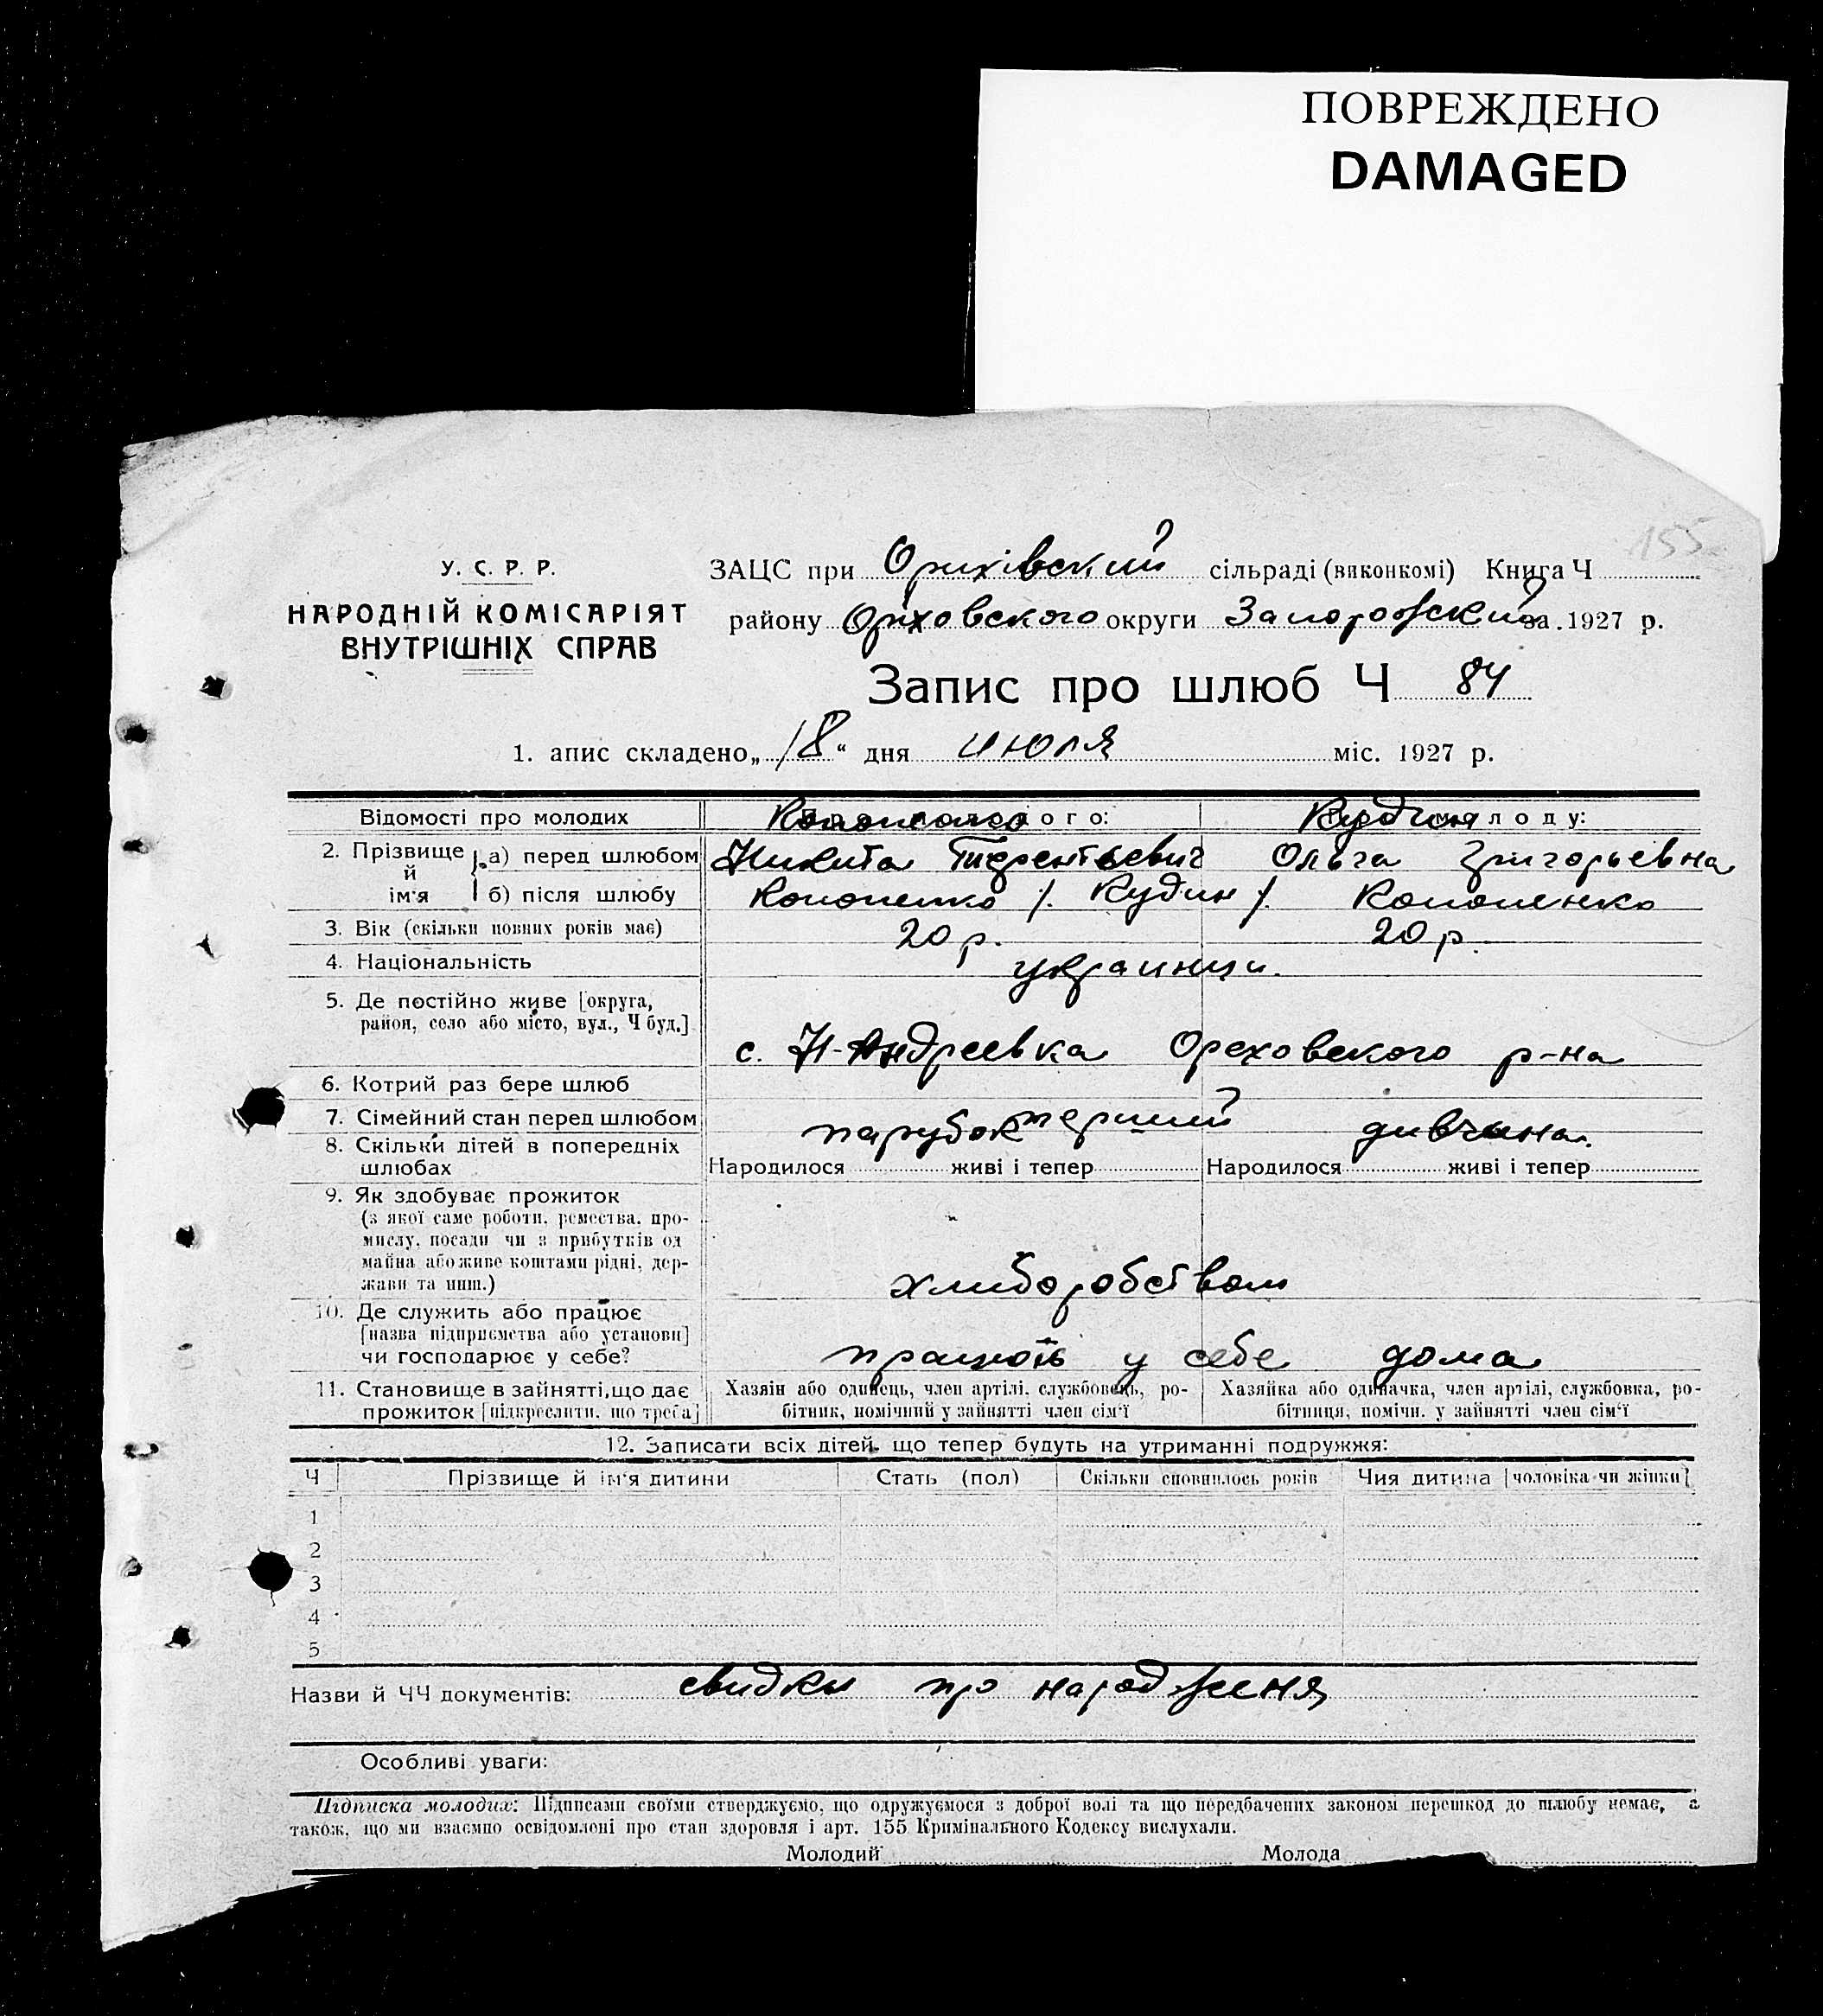 ПОВРЕЖДЕНО
DAMAGED
155
У. С. Р. Р.
НАРОДНІЙ КОМІСАРІЯТ
ВНУТРІШНІХ СПРАВ
ЗАЦС при Оріхівский сільраді (виконкомі) Книга Ч
району Оріховского округи Запорожский за 1927 р.
Запис про шлюб Ч 84
1. апис складено „18“ дня июля міс. 1927 р.
Відомості про молодих Кононенко ого: Кудин молоду:
2. Прізвище й ім'я а) перед шлюбом Никита Тиерентьевич Ольга Григорьевна
б) після шлюбу Кононенко /. Кудин /. Кононенко
3. Вік (скільки повних років має) 20 р. 20 р.
4. Національність украинци.
5. Де постійно живе [округа,
район, село або місто, вул., Ч буд.]
с. Н-Андреевка Ореховского р-на
6. Котрий раз бере шлюб перший
7. Сімейний стан перед шлюбом парубок дивчина.
8. Скільки дітей в попередніх
шлюбах Народилося живі і тепер Народилося живі і тепер
9. Як здобуває прожиток
(з якої саме роботи, ремества, про-
мислу, посади чи з прибутків од
майна або живе коштами рідні, дер-
жави та инш.) хлиборобством
10. Де служить або працює
[назва підприємства або установи]
чи господарює у себе? працюїть у себе дома
11. Становище в зайнятті, що дає Хазяін або одинець, член артілі, службовець, ро- Хазяйка або одиначка, член артілі, службовка, ро-
прожиток [підкреслити, що треба] бітник, помічний у зайнятті член сім'ї бітниця, помічн. у зайнятті член сім'ї
12. Записати всіх дітей, що тепер будуть на утриманні подружжя:
Ч Прізвище й ім'я дитини Стать (пол) Скільки сповнилось років Чия дитина [чоловіка чи жінки]
1
2
3
4
5
Назви й ЧЧ документів: свидки про народженя
Особливі уваги:
Підписка молодих: Підписами своїми стверджуємо, що одружуємося з доброї волі та що передбачених законом перешкод до шлюбу немає, а
також, що ми взаємно освідомлені про стан здоровля і арт. 155 Кримінального Кодексу вислухали.
Молодий Молода